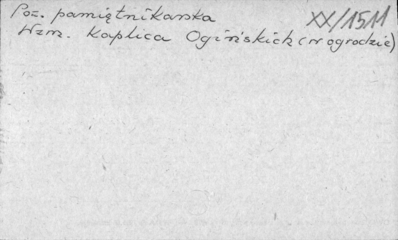 Poz. pamiętnikarska
XX/1511
Wzm. Kaplica Ogińskich (w ogrodzie)